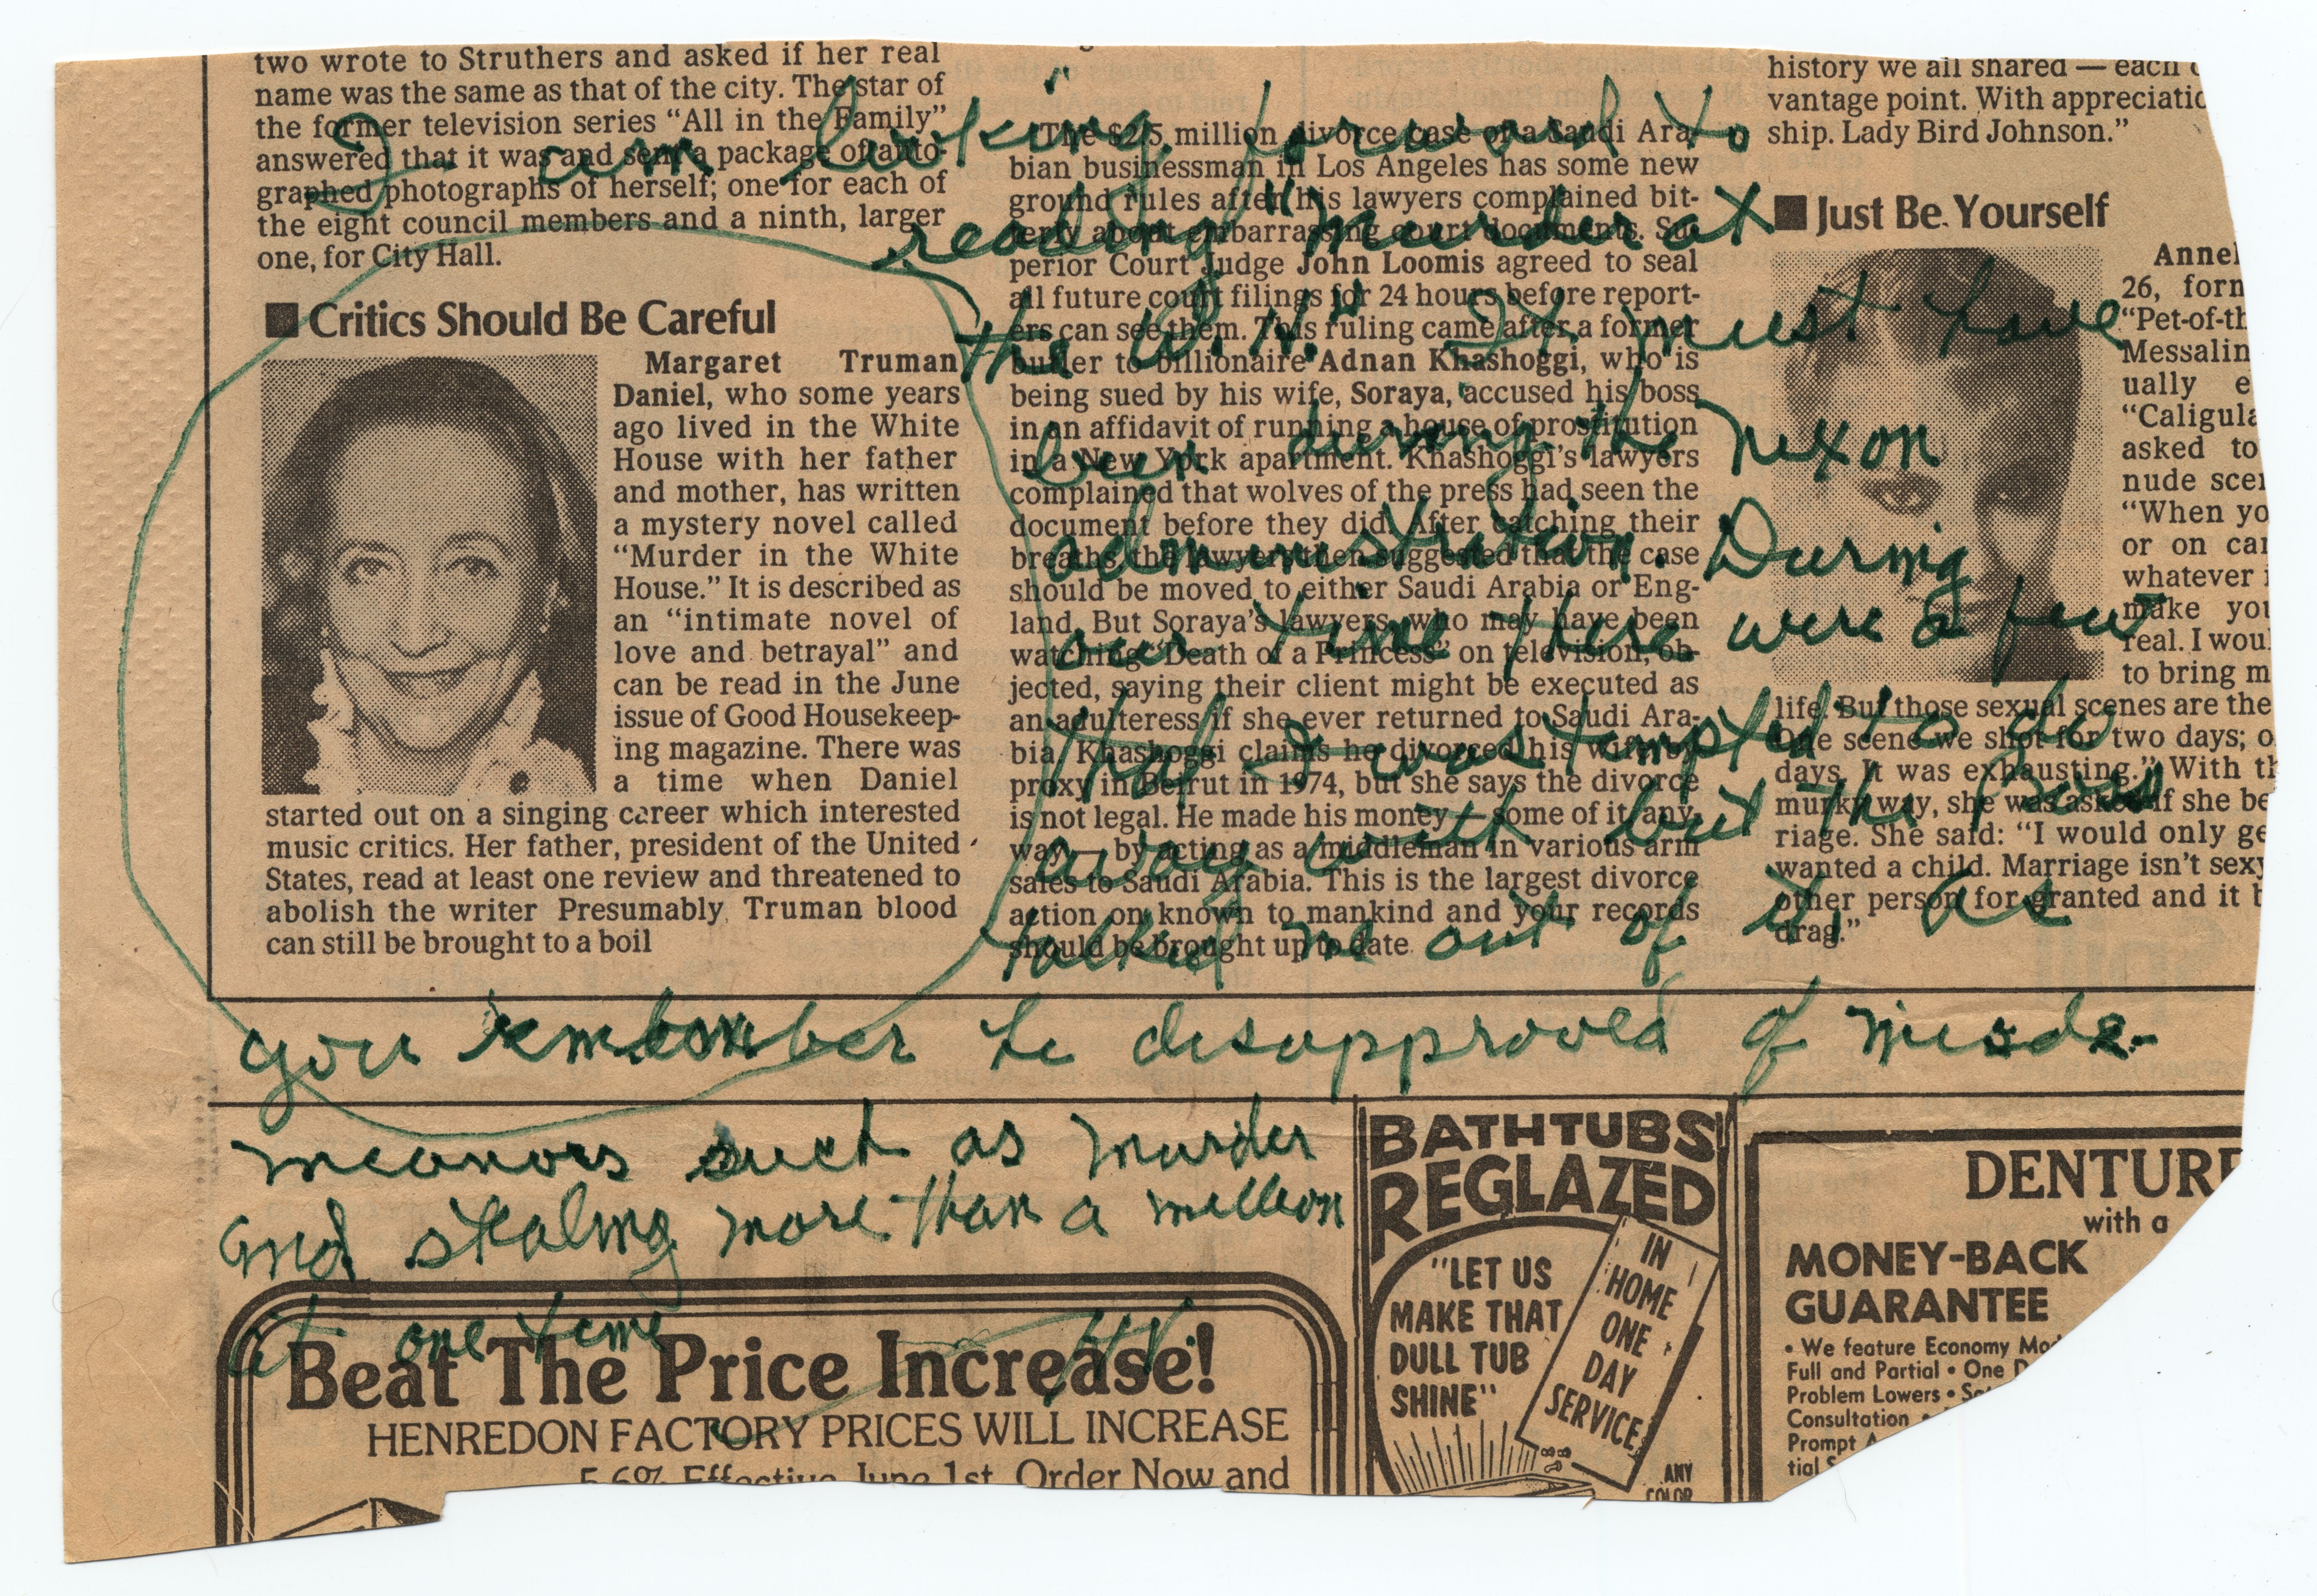 two wrote to Struthers and asked if her real
name was the same as that of the city. The star of
the former television series “All in the Family”
answered that it was and sent a package of auto-
graphed photographs of herself; one for each of
the eight council members and a ninth, larger
one, for City Hall.
■ Critics Should Be Careful
Margaret Truman
Daniel, who some years
ago lived in the White
House with her father
and mother, has written
a mystery novel called
“Murder in the White
House.” It is described as
an “intimate novel of
love and betrayal” and
can be read in the June
issue of Good Housekeep-
ing magazine. There was
a time when Daniel
started out on a singing career which interested
music critics. Her father, president of the United
States, read at least one review and threatened to
abolish the writer Presumably Truman blood
can still be brought to a boil
The $2.5 million divorce case of a Saudi Ara-
bian businessman in Los Angeles has some new
ground rules after his lawyers complained bit-
terly about embarrassing court documents. Su-
perior Court Judge John Loomis agreed to seal
all future court filings for 24 hours before report-
ers can see them. This ruling came after a former
butler to billionaire Adnan Khashoggi, who is
being sued by his wife, Soraya, accused his boss
in an affidavit of running a house of prostitution
in a New York apartment. Khashoggi’s lawyers
complained that wolves of the press had seen the
document before they did. After catching their
breaths, the lawyers then suggested that the case
should be moved to either Saudi Arabia or Eng-
land. But Soraya’s lawyers, who may have been
watching “Death of a Princess” on television, ob-
jected, saying their client might be executed as
an adulteress if she ever returned to Saudi Ara-
bia. Khashoggi claims he divorced his wife by
proxy in Beirut in 1974, but she says the divorce
is not legal. He made his money — some of it, any-
way — by acting as a middleman in various arm
sales to Saudi Arabia. This is the largest divorce
action on known to mankind and your records
should be brought up to date.
history we all shared — each
vantage point. With appreciatio
ship. Lady Bird Johnson.”
■ Just Be Yourself
Annel
26, forn
“Pet-of-th
Messalin
ually e
“Caligula
asked to
nude scen
“When yo
or on car
whatever
make you
real. I woul
to bring m
life. But those sexual scenes are the
One scene we shot for two days; o
days. It was exhausting.” With th
murky way, she was asked if she be
riage. She said: “I would only ge
wanted a child. Marriage isn’t sexy
other person for granted and it b
drag.”
I am looking forward to
reading "Murder at
the W.H." It must have
been during the Nixon
administration. During
our time there were a few
that I was tempted to do
away with but the Boss
talked me out of it, as
you remember he disapproved of misde-
meanors such as murder
and stealing more than a million
at one time
BATHTUBS
REGLAZED
"LET US
MAKE THAT
DULL TUB
SHINE"
IN
HOME
ONE
DAY
SERVICE
ANY
COLOR
DENTURE
with a
MONEY-BACK
GUARANTEE
• We feature Economy Mod
Full and Partial • One D
Problem Lowers •
Consultation •
Prompt
tial
Beat The Price Increase!
HENREDON FACTORY PRICES WILL INCREASE
5.6% Effective June 1st. Order Now and